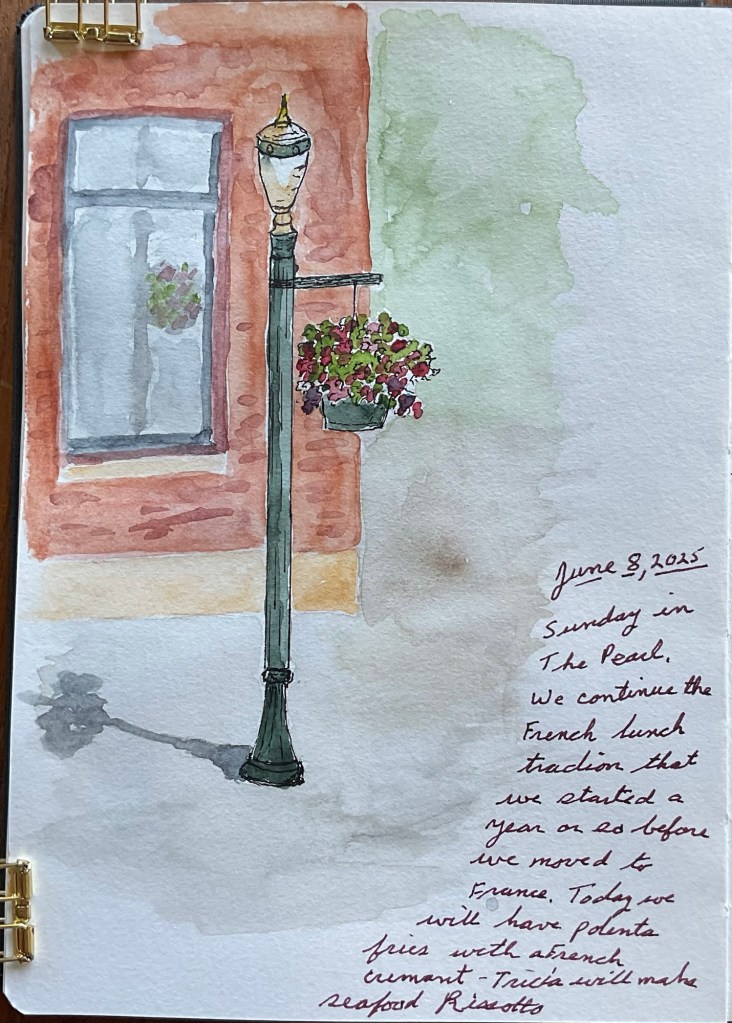 June 8, 2025
Sunday in
The Pearl.
We continue the
French lunch
tradion that
we started a
year or so before
we moved to
France. Today we
will have polenta
fries with a French
cremant - Tricia will make
seafood Rissotto